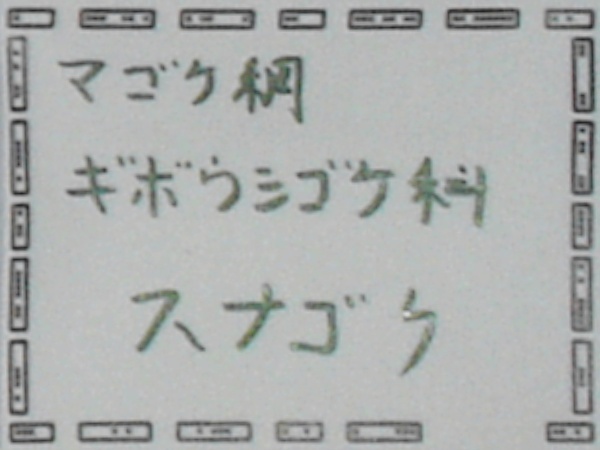 マゴケ綱
ギボウシゴケ科
スナゴケ